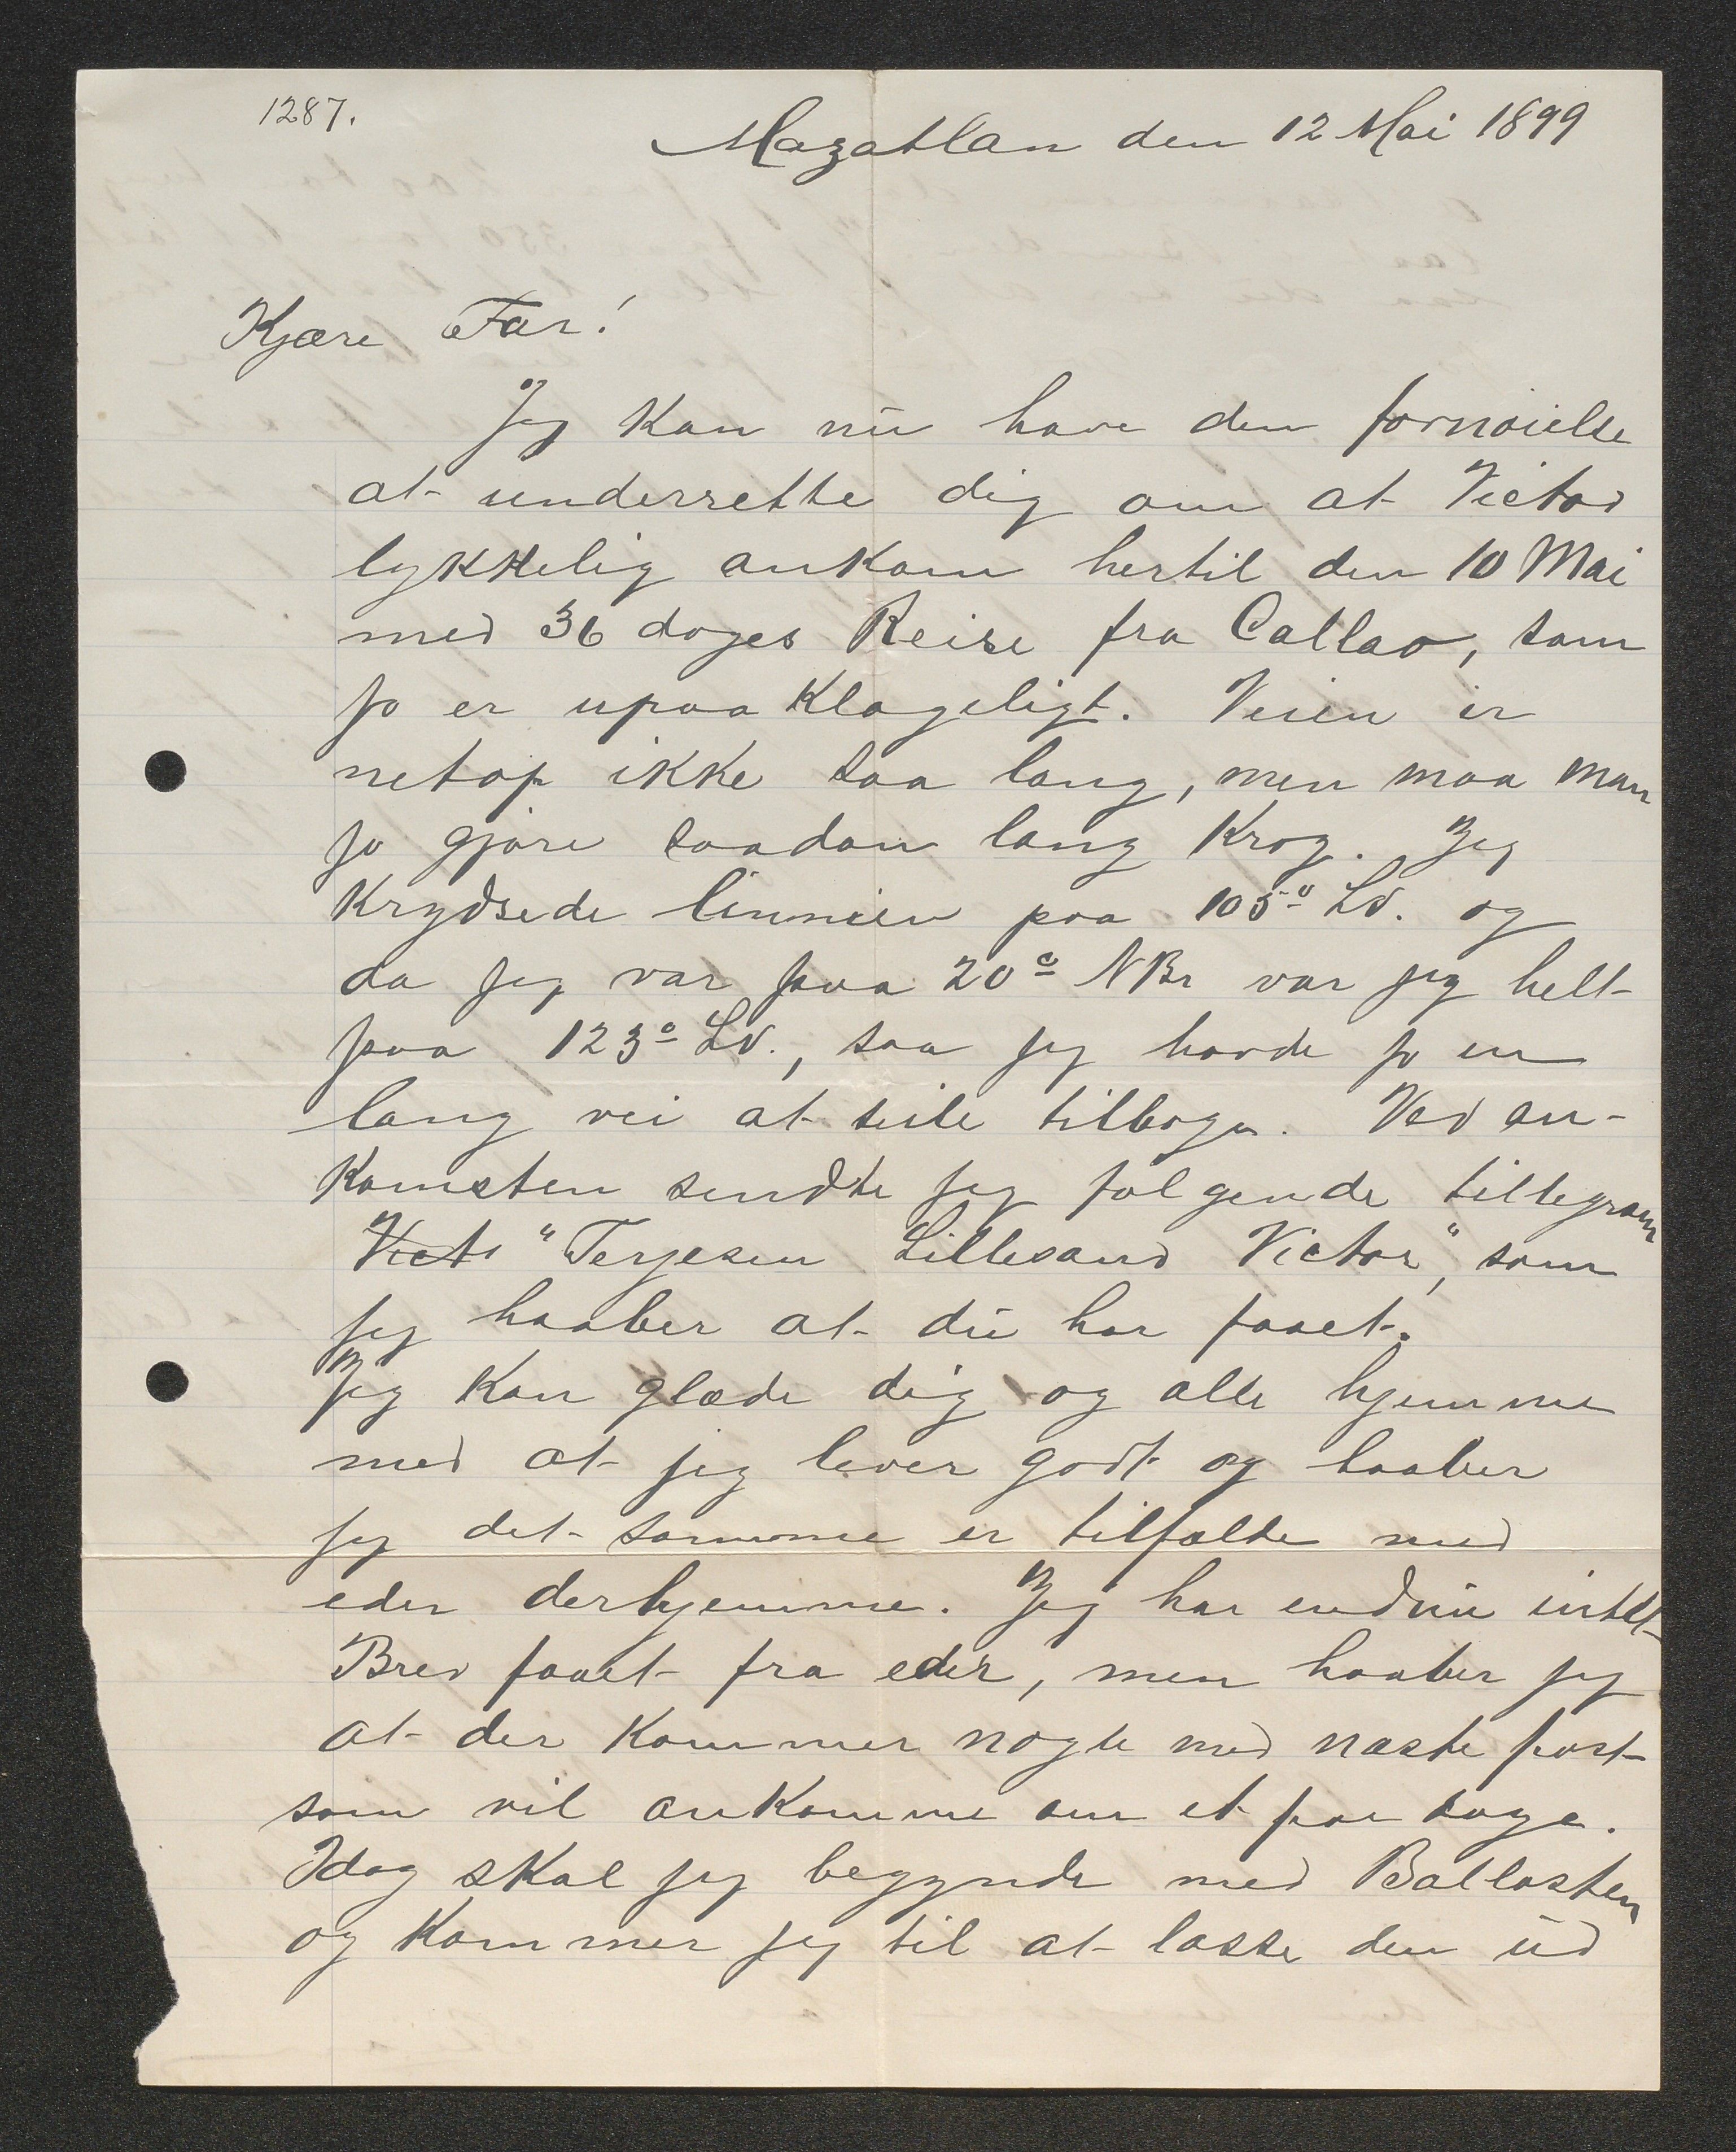 1287.
Mazatlan den 12 Mai 1899
Kjære Far!
Jeg kan nu have den fornøielse
at underrette dig om at Victor
lykkelig ankom hertil den 10 Mai
med 36 dages Reise fra Callao, som
jo er upaaklageligt. Veien er
netop ikke saa lang, men maa man
jo gjøre saadan lang Krog. Jeg
Krydsede linnien paa 105° Ld. og
da jeg var paa 20° NBr var jeg helt
paa 123° Ld., saa jeg havde jo en
lang vei at seile tilbage. Ved an-
komsten sendte jeg følgende tillegram
Vict "Terjesen Lillesand Victor", som
jeg haaber at du har faaet.
Jeg kan glæde dig og alle hjemme
med at jeg lever godt og haaber
jeg det samme er tilfælde med
eder derhjemme. Jeg har endnu intet
Brev faaet fra eder, men haaber jeg
at der kommer nogle med næste post
som vil ankomme om et par dage.
Idag skal jeg begynde med Ballasten
og kommer jeg til at losse den ud